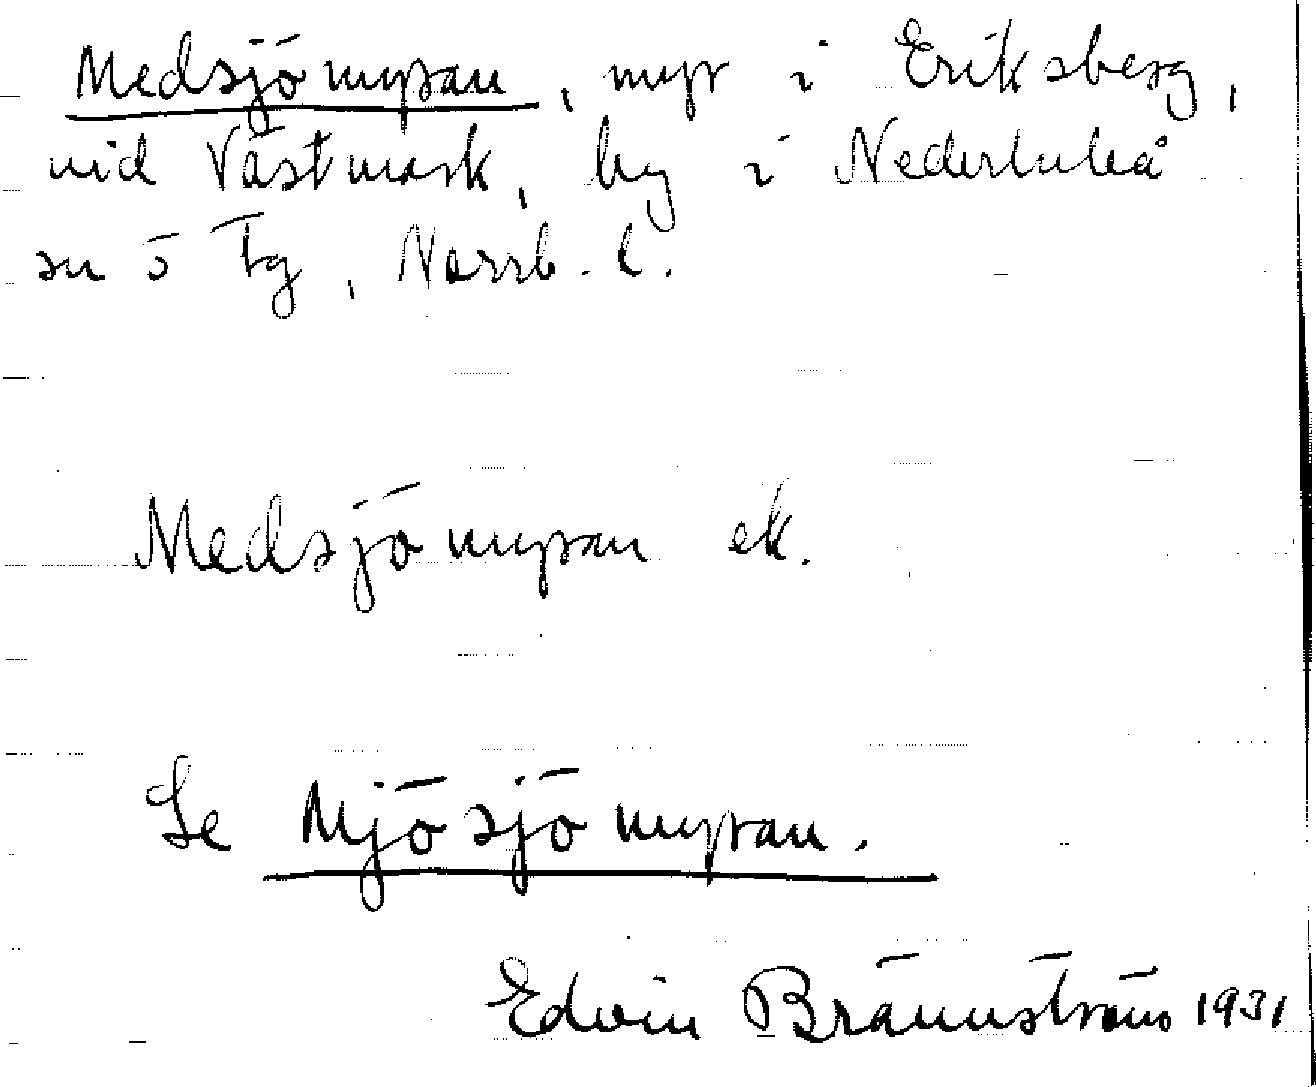 Medsjömyran, myr i Eriksberg,
vid Västmark, by i Nederluleå
sn ö tg, Norrb. l.
Medsjömyran ek.
Se Mjösjömyran.
Edvin Brännström 1931